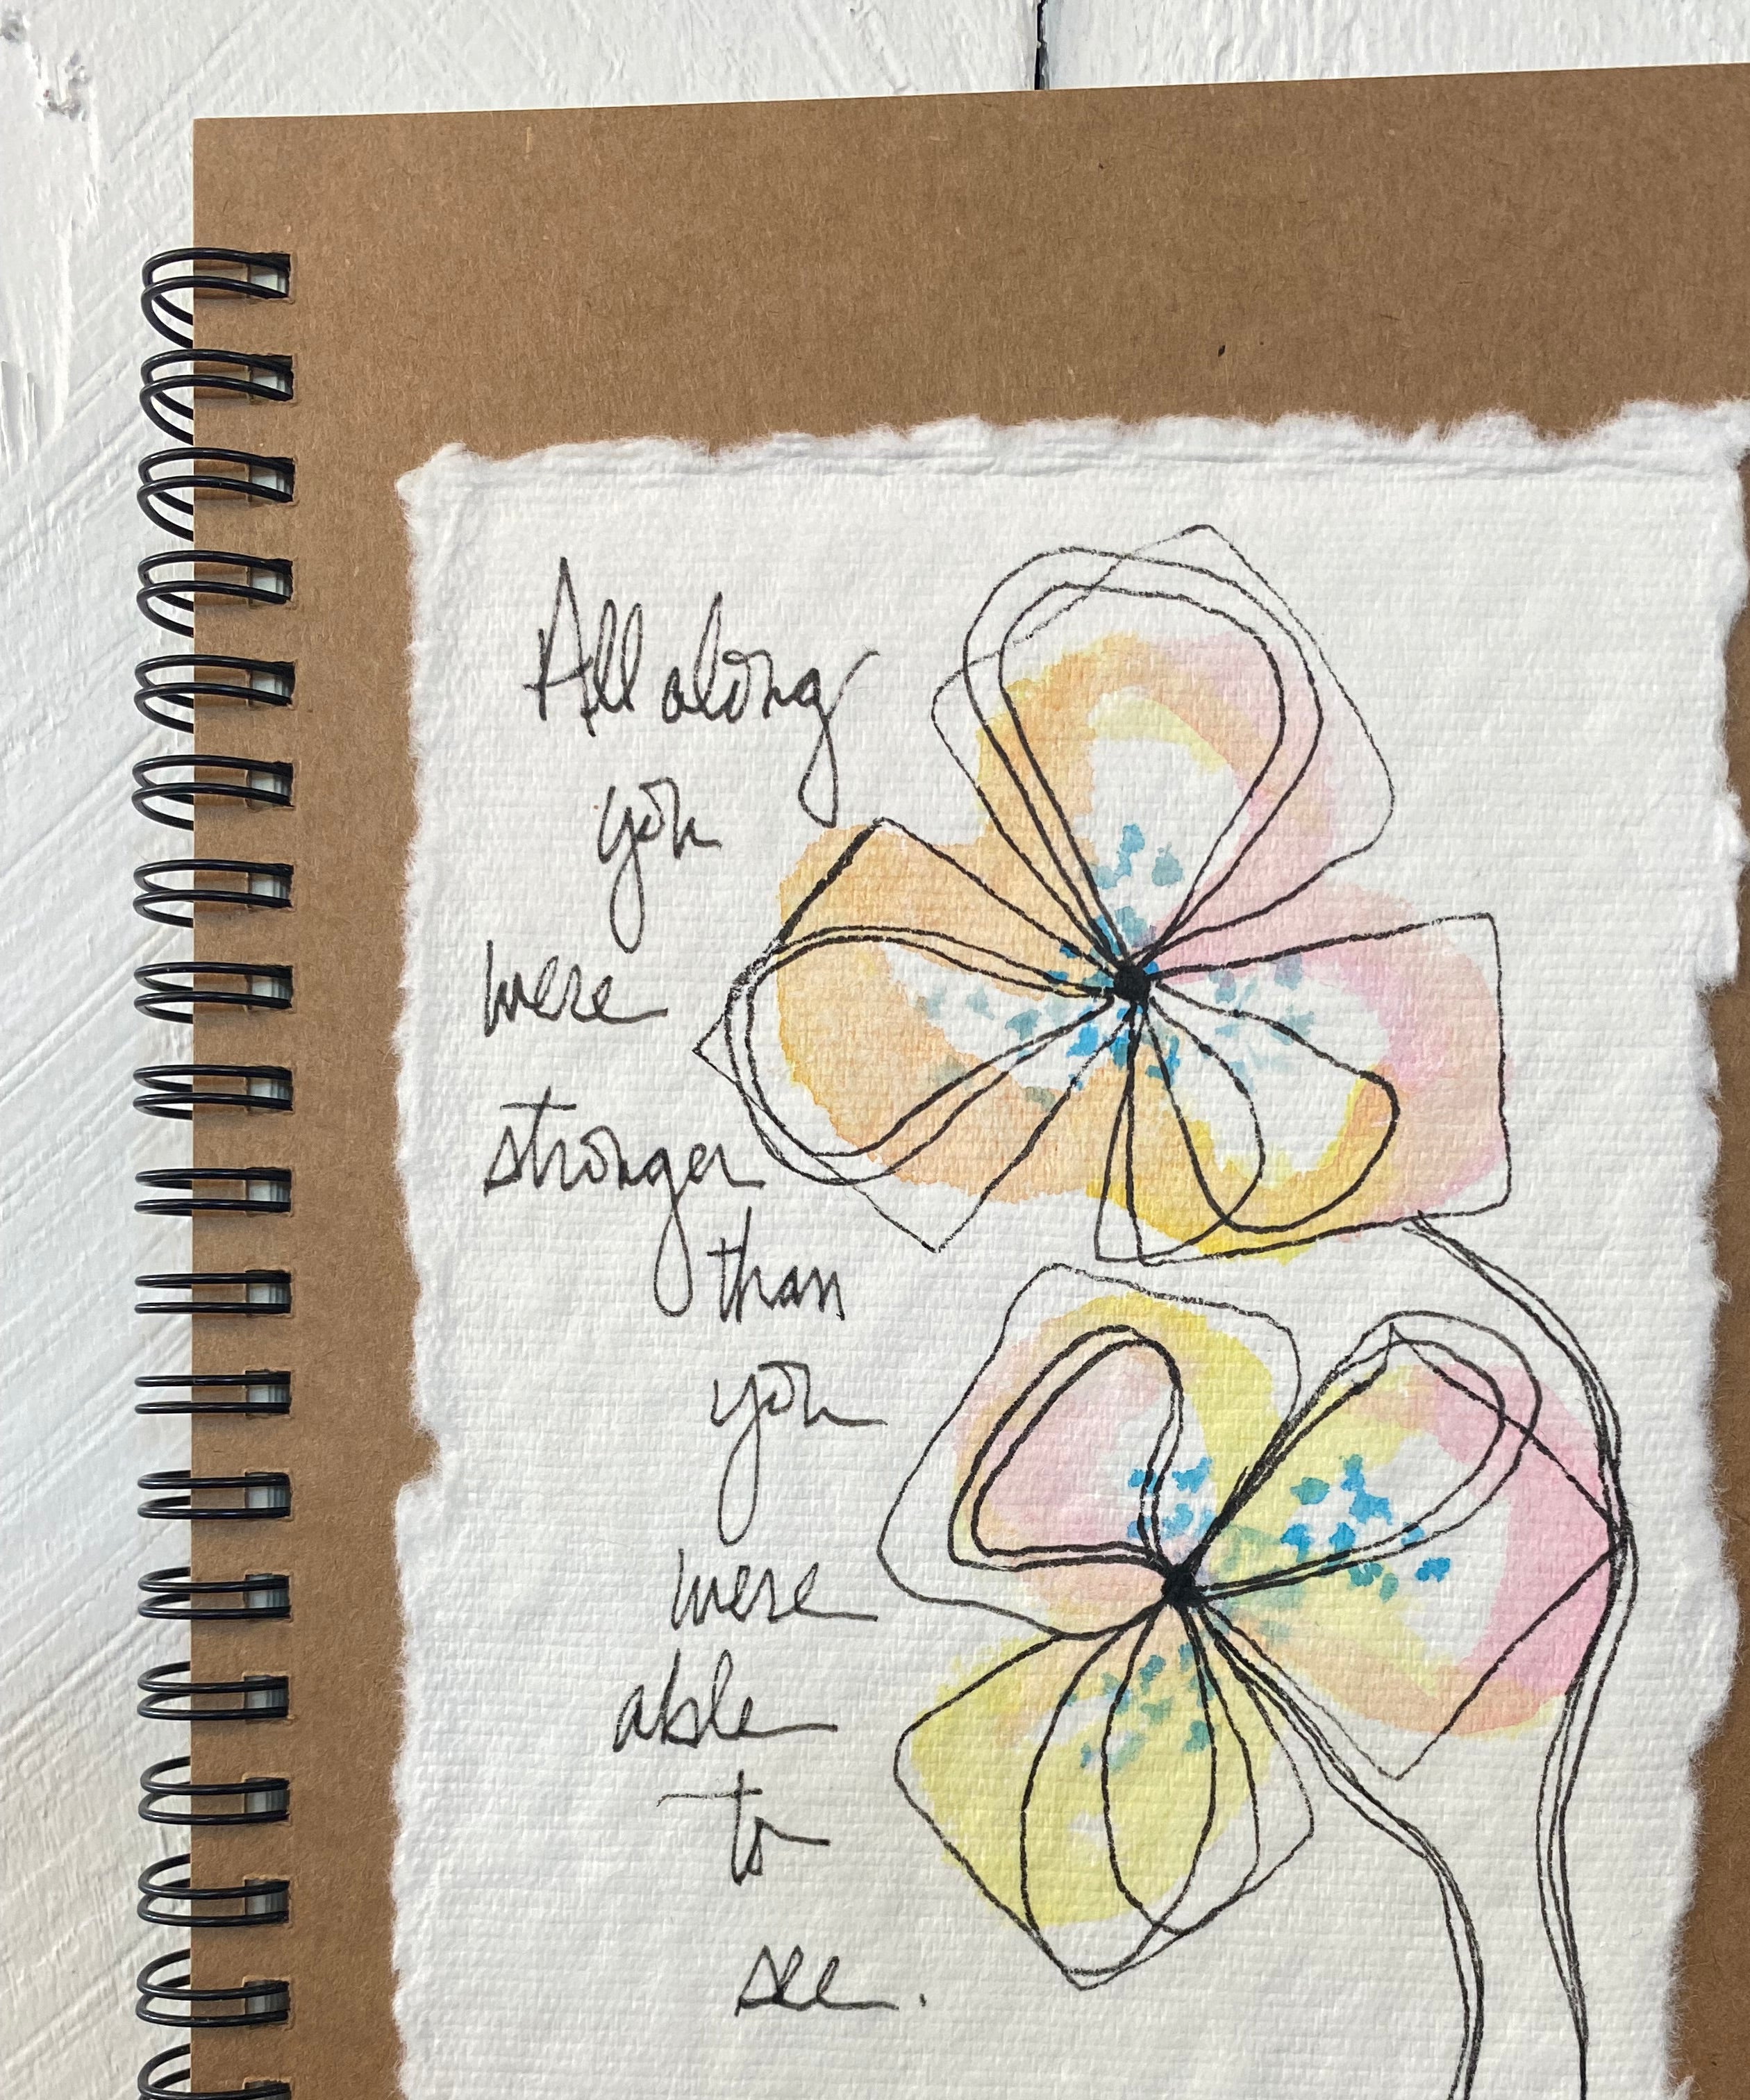 All along
you
were
stronger
than
you
were
able
to
see.